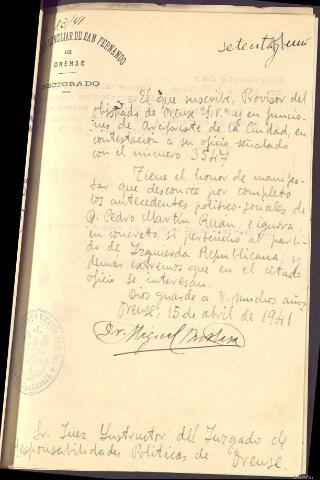 83/41
CONCILIAR DE SAN FERNANDO
DE
ORENSE
RECTORADO
setenta y uno
El que suscribe, Provisor del
obispado de Orense "S.V." y en funcio-
nes de Arcipreste de la Ciudad, en
contestación a su oficio señalado
con el número 3547
Tiene el honor de manifes-
tar que desconoce por completo
los antecedentes político-sociales de
D. Pedro Martín Ruán, e ignora,
en concreto, si perteneció al parti-
do de Izquierda Republicana, y
demas extremos que en el citado
oficio se interesan.
Dios guarde a V. muchos años
Orense, 15 de abril de 1941
Dr. Miguel
Sr. Juez Instructor del Juzgado de
Responsabilidades Políticas de Orense.